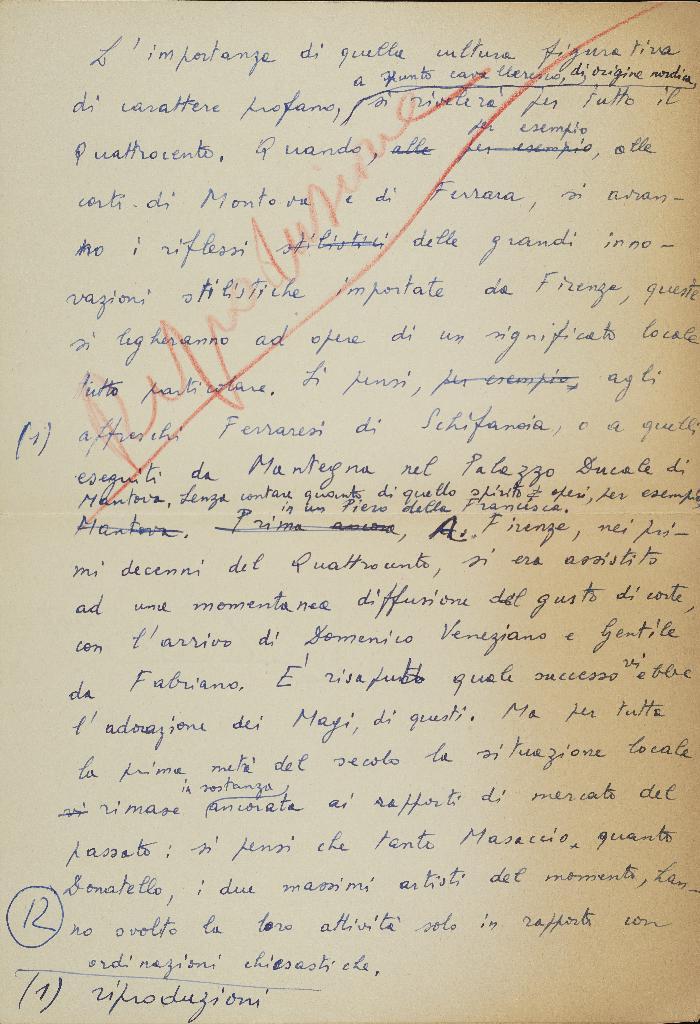 L'importanza di quella cultura figurativa
a sfondo cavalleresco, di origine nordica,
di carattere profano, si rivelerà per tutto il
per esempio
Quattrocento. Quando, alle per esempio, alle
corti di Mantova e di Ferrara, si avran-
no i riflessi stilistici delle grandi inno-
vazioni stilistiche importate da Firenze, queste
si legheranno ad opere di un significato locale
tutto particolare. Si pensi, per esempio, agli
(1) affreschi Ferraresi di Schifanoia, o a quelli
eseguiti da Mantegna nel Palazzo Ducale di
Mantova. Senza contare quanto di quello spirito operi, per esempio,
in un Piero della Francesca.
Mantova. Prima ancora, A Firenze, nei pri-
mi decenni del Quattrocento, si era assistito
ad una momentanea diffusione del gusto di corte,
con l'arrivo di Domenico Veneziano e Gentile
da Fabriano. E' risaputo quale successo vi ebbe
l'adorazione dei Magi, di questi. Ma per tutta
la prima metà del secolo la situazione locale
in sostanza
vi rimase ancorata ai rapporti di mercato del
passato: si pensi che tanto Masaccio, quanto
Donatello, i due massimi artisti del momento, han-
12 no svolto la loro attività solo in rapporto con
ordinazioni chiesastiche.
(1) riproduzioni
Riproduzione